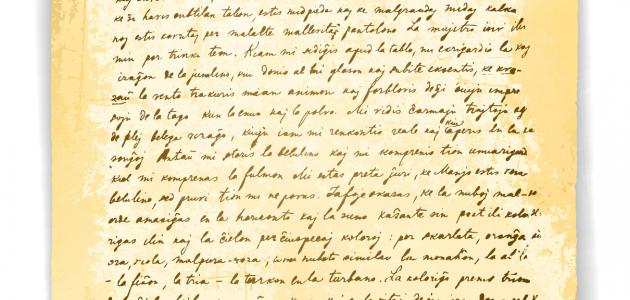 ke ŝi havis subtilan talion, estis nudpieda kaj ke malgrandaj nudaj kalka
noj estis kovritaj per malalte mallevitaj pantalono. La majstro invitis
min por trinki teon. Kiam mi sidiĝis apud la tablo, mi ekrigardis la viz
aĝon de la junulino, kiu donis al mi glason kaj subite eksentis, kva
zaŭ la vento trakuris mian animon kaj forblovis de ĝi ĉiujn impre
sojn de la tago kun la enuo kaj la polvo. Mi vidis ĉarmajn trajtojn
de plej belega vizaĝo, kiujn iam mi renkontis reale kaj kiu aperis en la
sonĝoj. Antaŭ mi staris la belulino kaj mi komprenis tion unuarigarde
kiel mi komprenas la fulmon. Mi estas preta ĵuri, ke Manjo estis vera
belulino, sed pruvi tion mi ne povas. Iafoje okazas, ke la nuboj mal
orde amasiĝas en la horizonto kaj la suno kaŝante sin post ili kolo
rigas ilin kaj la ĉielon per ĉiuspecaj koloroj: per skarlata, oranĝa,
ora, viola, malpura-roza; unu nubeto similas la monaĥon, la alia
- la fiŝon, la tria - la turkon en la turbano. La koloriĝo